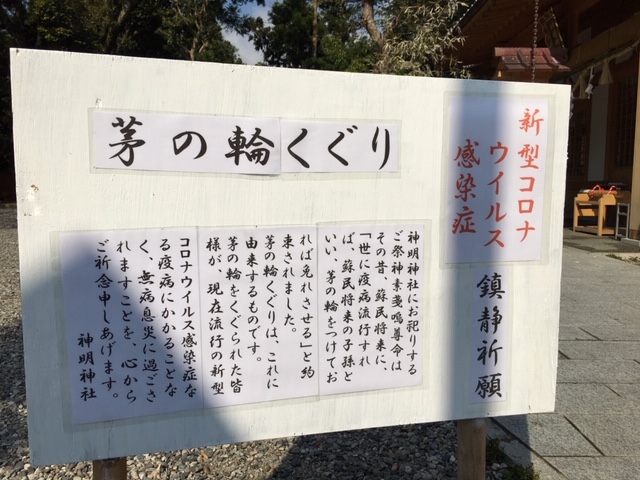 茅の輪くぐり
新型コロナ
ウイルス
感染症
鎮静祈願
神明神社にお祀りする
ご祭神素戔嗚尊命は
その昔、蘇民将来に、
「世に疫病流行すれ
ば、蘇民将来の子孫と
いい、茅の輪をつけてお
れば免れさせる」と約
束されました。
茅の輪くぐりは、これに
由来するものです。
茅の輪をくぐられた皆
様が、現在流行の新型
コロナウイルス感染症な
る疫病にかかることな
く、無病息災に過ごさ
れますことを、心から
ご祈念申しあげます。
神明神社